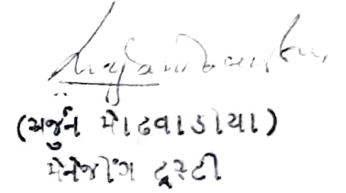 (અર્જુન મોઢવાડીયા)
મેનેજીંગ ટ્રસ્ટી